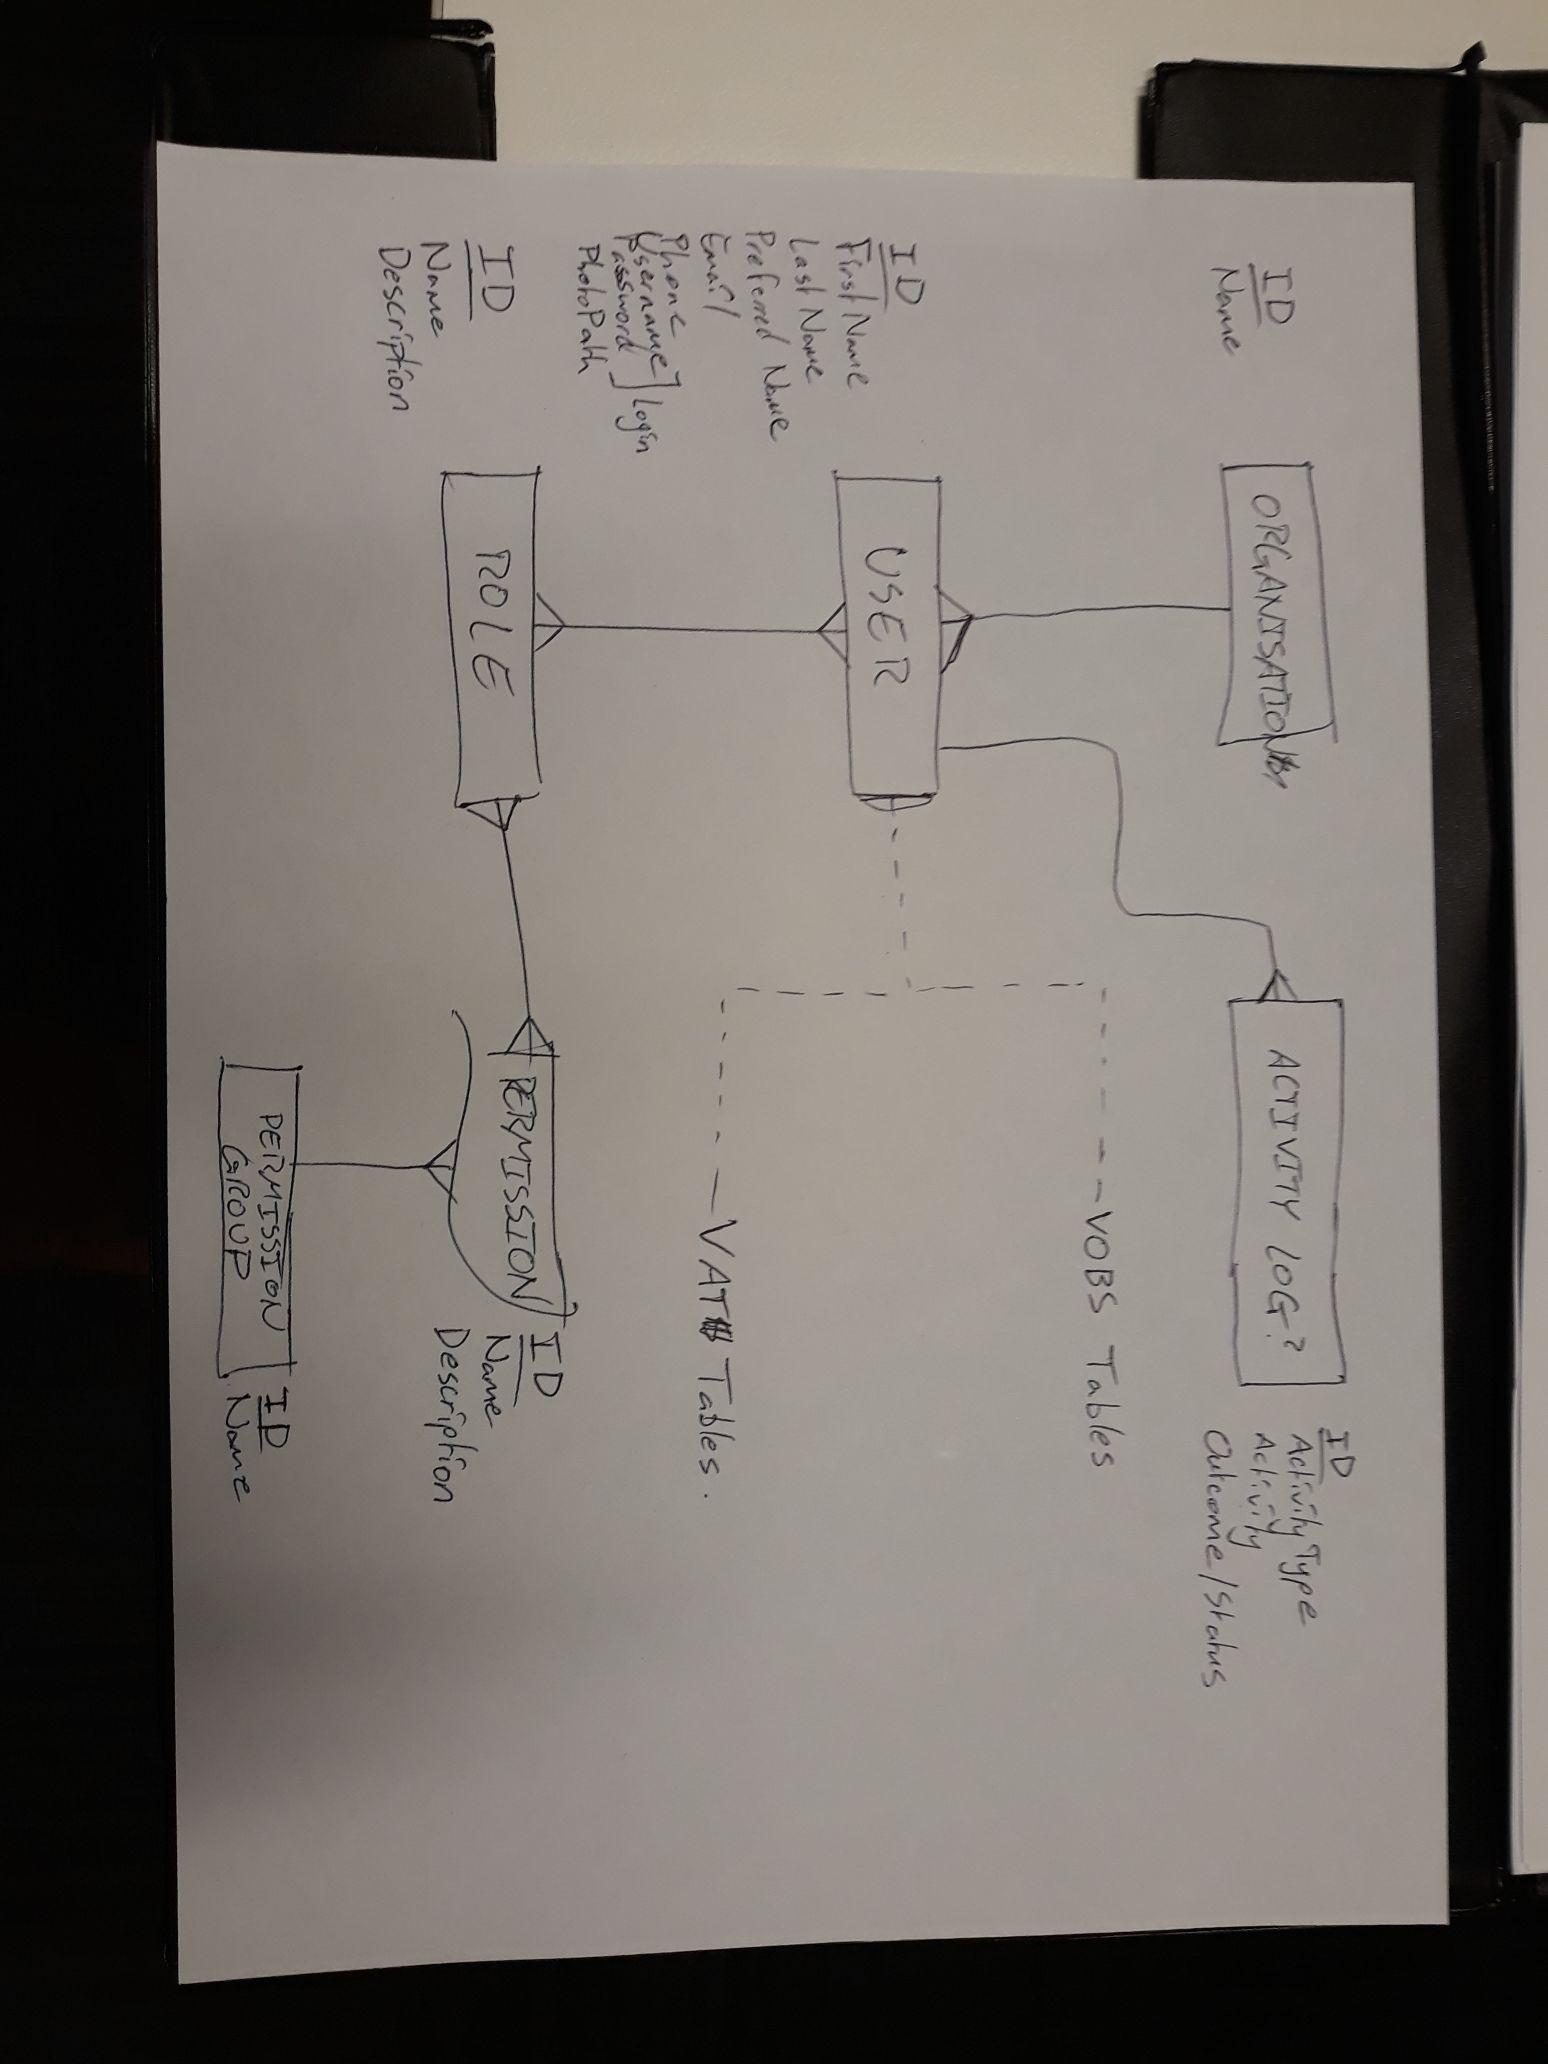 ORGANISATION
ID
Name
ACTIVITY LOG?
ID
ActivityType
Activity
Outcome/Status
VOBS Tables
USER
ID
First Name
Last Name
Preferred Name
Email
Phone
Username
Password
Login
PhotoPath
VAT Tables.
ROLE
ID
Name
Description
PERMISSION
ID
Name
Description
PERMISSION
GROUP
ID
Name